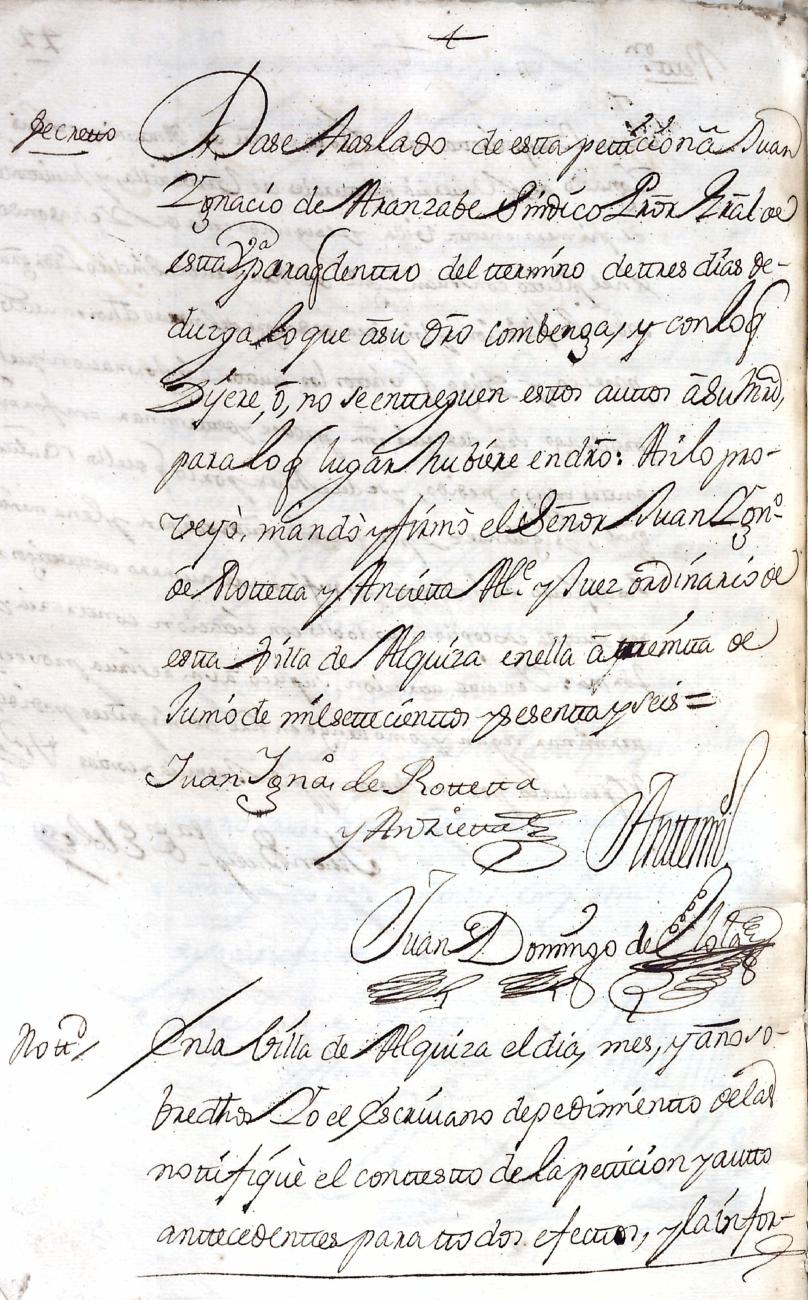 Decretto
Dase traslado de estta petticion â Juan
Ygnacio de Aranzabe Sindico Pror Gral de
estta Va para q denttro del ttermino de ttres dias de-
duzga lo que âsu dro combenga, y con lo q
Dijere, ô, no se enttreguen esttos auttos â Su Mrd,
para lo q lugar hubiere en dro: Asi lo pro-
veyò, mandò y firmò el Señor Juan Ygno
de Rottetta y Ancietta Alce y Juez ordinario de
estta Villa de Alquiza en ella â ttreintta de
Junio de mil settecienttos y sesentta y seis=
Juan Ygnao de Rottetta
y Anzietta
Anttemi
Juan Domingo de
Nottn
En la Villa de Alquiza el dia, mes, y año so-
bredhos Yo el Escrivano de pedimientto de la
nottifiquè el conttestto de la petticion y autto
anttecedenttes para ttodos efecttos, y la infor-